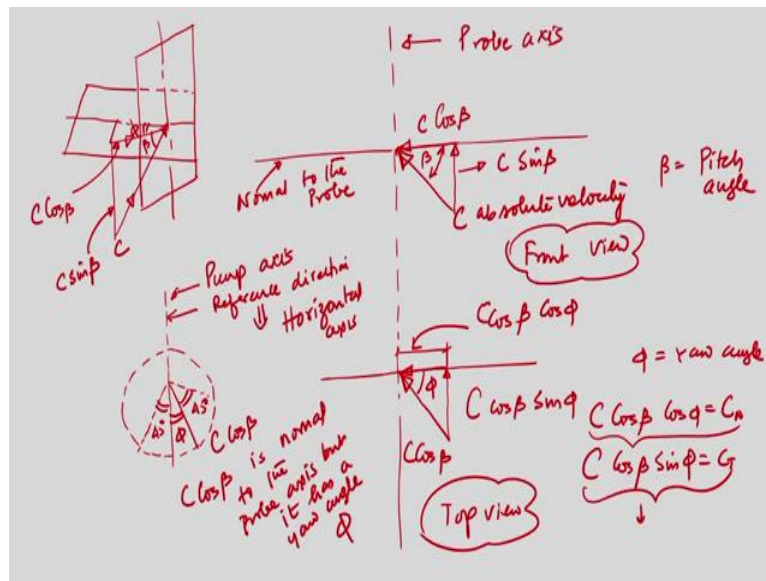 Probe axis
C Cosβ
β
C Sinβ
Normal to the
Probe
C absolute velocity
β = Pitch
angle
Front View
β
C Cosβ
C sinβ
C
Pump axis
Reference direction
⇓ Horizontal
axis
45°
φ
45°
C Cosβ
C Cosβ is normal
to the
probe axis but
it has a
yaw angle
φ
C Cosβ Cosφ
φ
C Cosβ Sinφ
C Cosβ
Top view
φ = Yaw angle
C Cosβ Cosφ =
C Cosβ Sinφ =